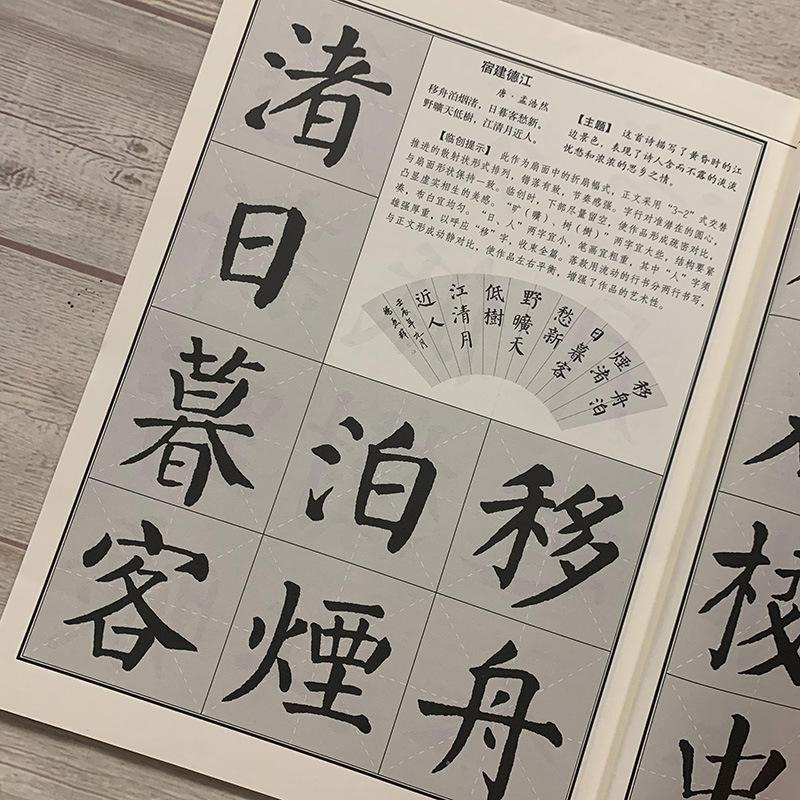 宿建德江
唐·孟浩然
移舟泊烟渚，日暮客愁新。
野曠天低樹，江清月近人。
【主题】 这首诗描写了黄昏时的江
边景色，表现了诗人含而不露的淡淡
忧愁和浓浓的思乡之情。
【临创提示】 此作为扇面中的折扇幅式，正文采用“3-2”式交替
推进的散射状形式排列，错落有致，节奏感强。字行对准潜在的圆心，
与扇面形状保持一致。临创时，下部尽量留空，使作品形成疏密对比，
凸显虚实相生的美感。“旷（曠）、树（樹）”两字宜大些，结构要紧
凑，布白宜均匀。“日、人”两字宜小，笔画宜粗重，其中“人”字须
雄强厚重，以呼应“移”字，收束全篇。落款用流动的行书分两行书写，
与正文形成动静对比，使作品左右平衡，增强了作品的艺术性。
移舟泊
煙渚
日暮客
愁新
野曠天
低樹
江清月
近人
移舟
泊煙
渚日暮客